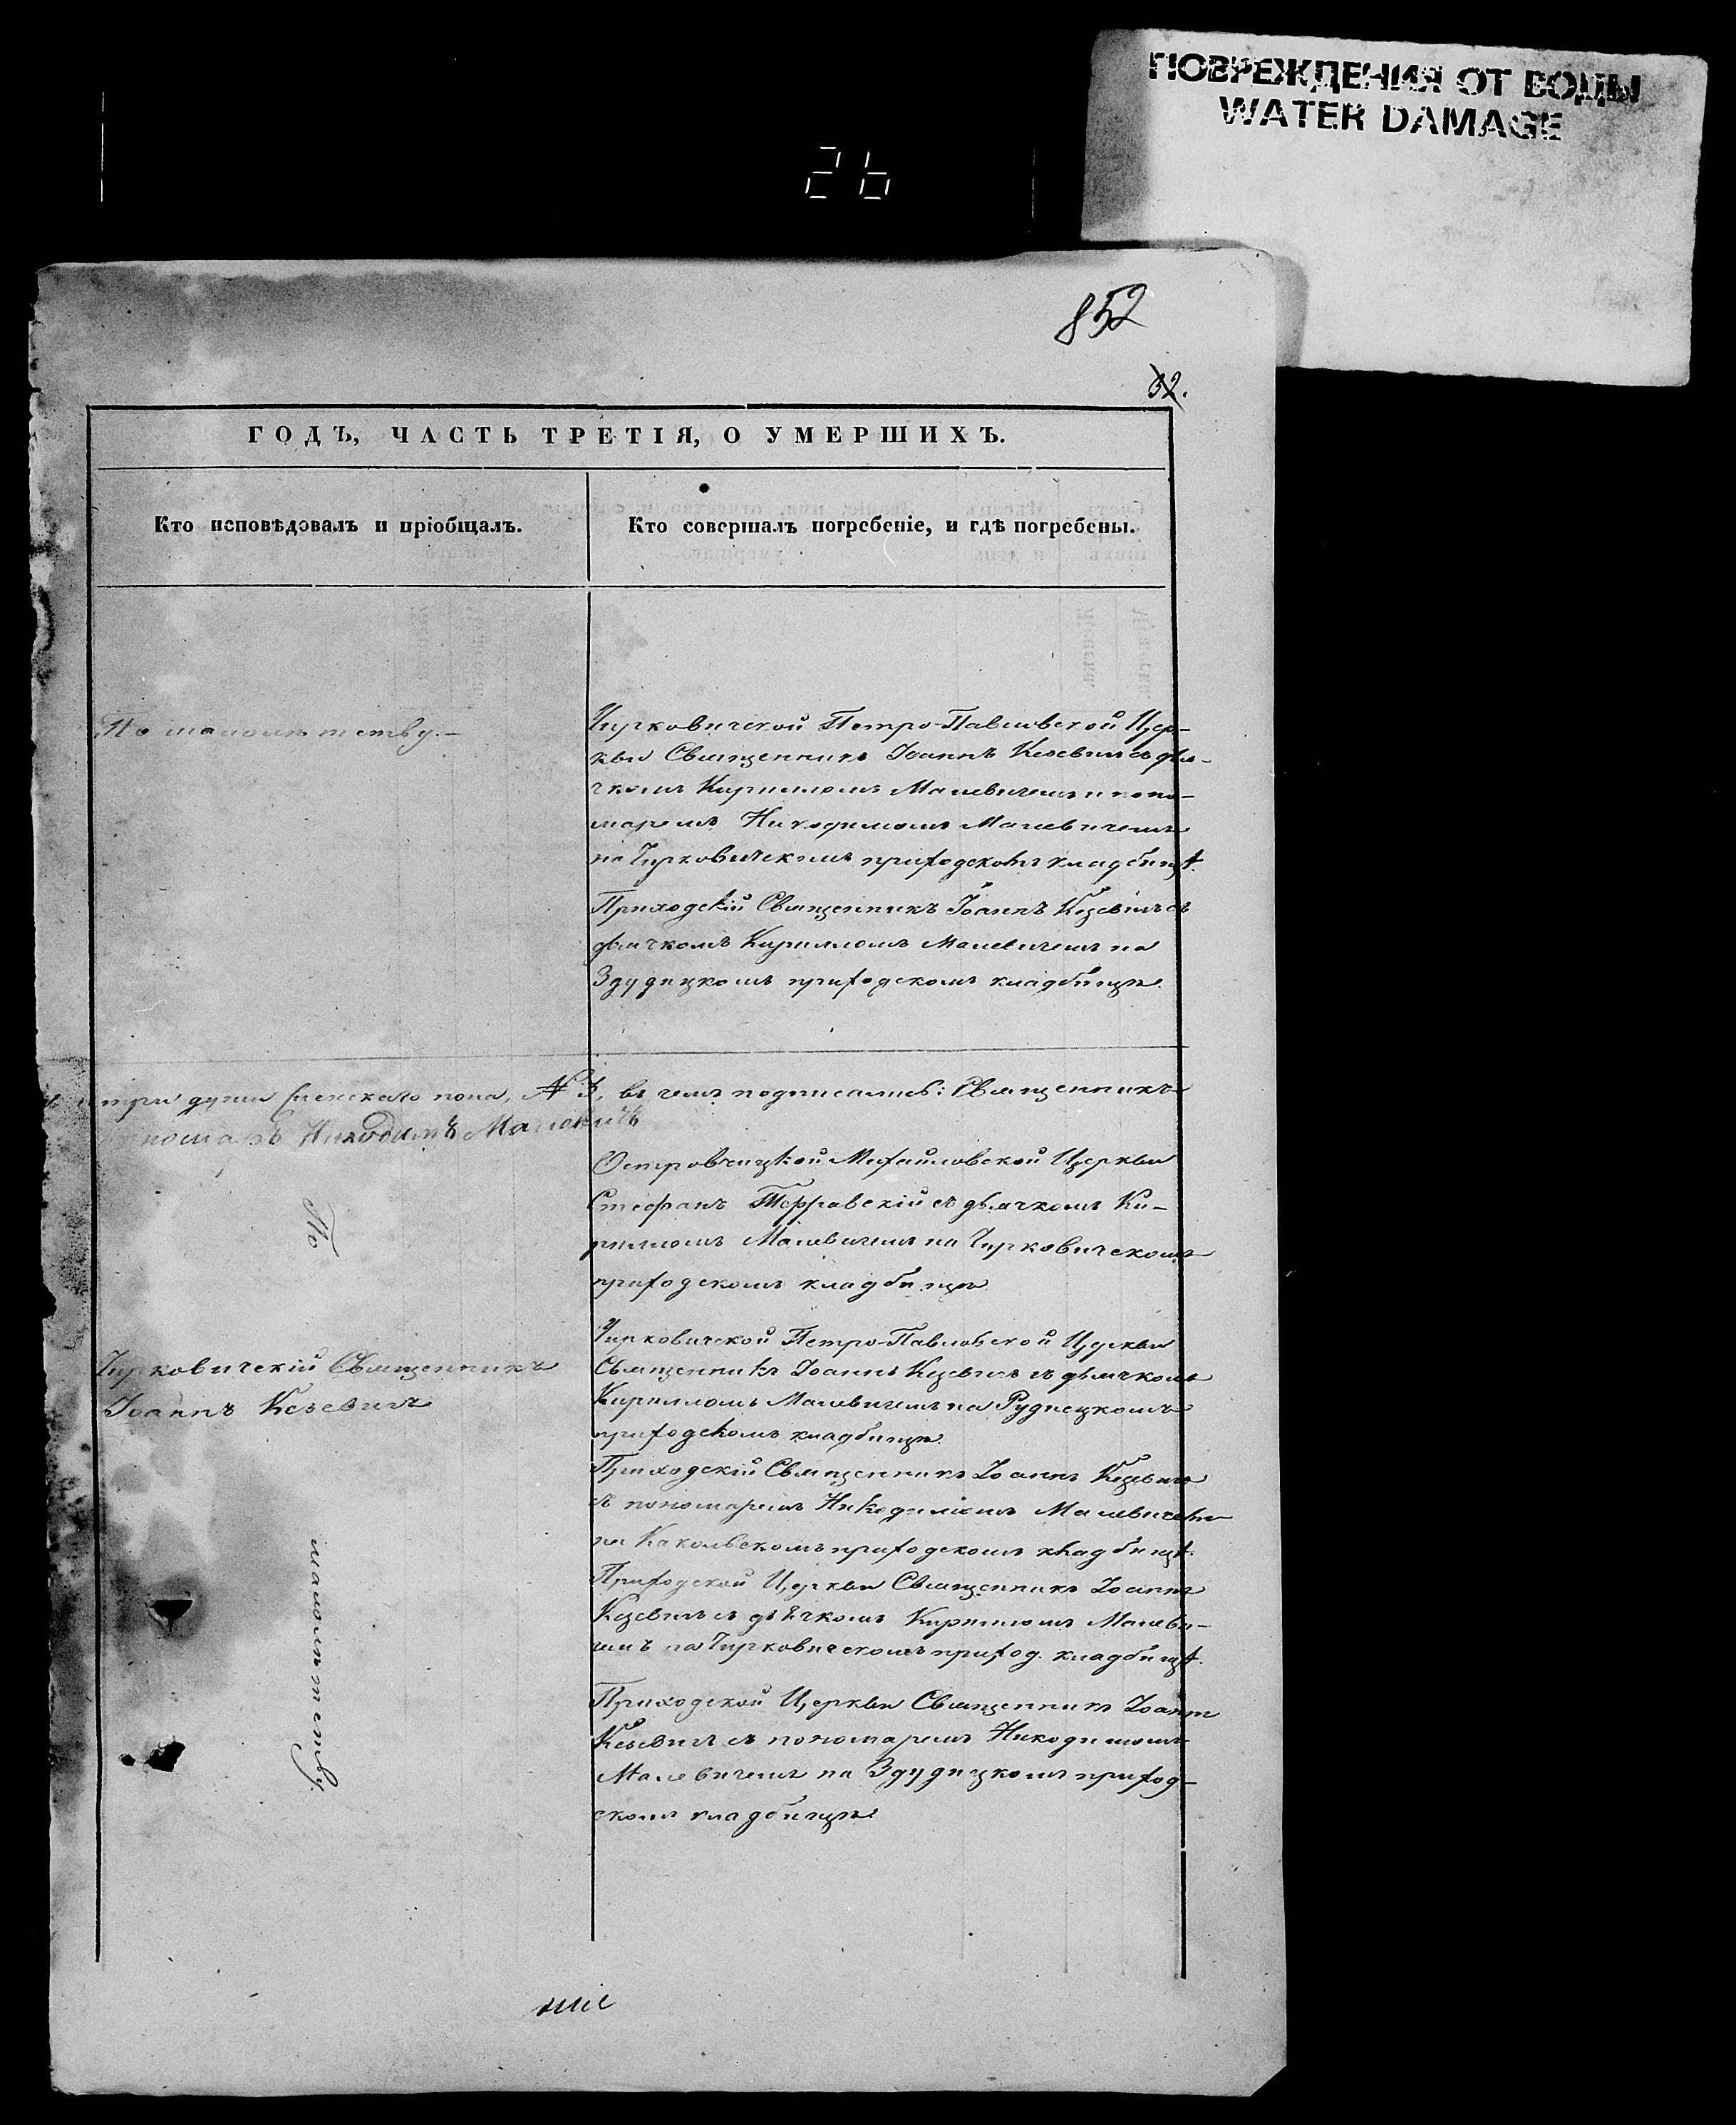 ПОВРЕЖДЕНИЯ ОТ ВОДЫ
WATER DAMAGE
26
852
32.
ГОДЪ, ЧАСТЬ ТРЕТІЯ, О УМЕРШИХЪ.
Кто исповѣдовалъ и пріобщалъ.
Кто совершалъ погребеніе, и гдѣ погребены.
По малолѣтству.-
Чирковичской Петро-Павловской Цер-
кви Священникъ Іоаннъ Кезевичъ съ дья-
чкомъ Кирилломъ Малевичемъ и поно-
маремъ Никодимомъ Малевичемъ
на Чирковичскомъ приходскомъ кладбищѣ.
Приходскій Священникъ Іоаннъ Кезевичъ съ
дьячкомъ Кирилломъ Малевичемъ на
Здудицкомъ приходскомъ кладбищѣ.
три души женскаго пола, № 3, въ чемъ подписались: Священникъ
Пономарь Никодимъ Малевичъ
Островчицкой Михайловской Церкви
Стефанъ съ дьячкомъ Ки-
рилломъ Малевичемъ на Чирковичскомъ
приходскомъ кладбищѣ
По
Чирковичской Петро-Павловской Церкви
Священникъ Іоаннъ Кезевичъ съ дьячкомъ
Кирилломъ Малевичемъ на Руднецкомъ
приходскомъ кладбищѣ.
Чирковичскій Священникъ
Іоаннъ Кезевичъ
Приходскій Священникъ Іоаннъ Кезевичъ
съ пономаремъ Никодимомъ Малевичемъ
на Какольскомъ приходскомъ кладбищѣ.
Приходской Церкви Священникъ Іоаннъ
Кезевичъ съ дьячкомъ Кирилломъ Малеви-
чемъ на Чирковичскомъ приход. кладбищѣ.
малолѣтству
Приходской Церкви Священникъ Іоаннъ
Кезевичъ съ пономаремъ Никодимомъ
Малевичемъ на Здудицкомъ приход-
скомъ кладбищѣ